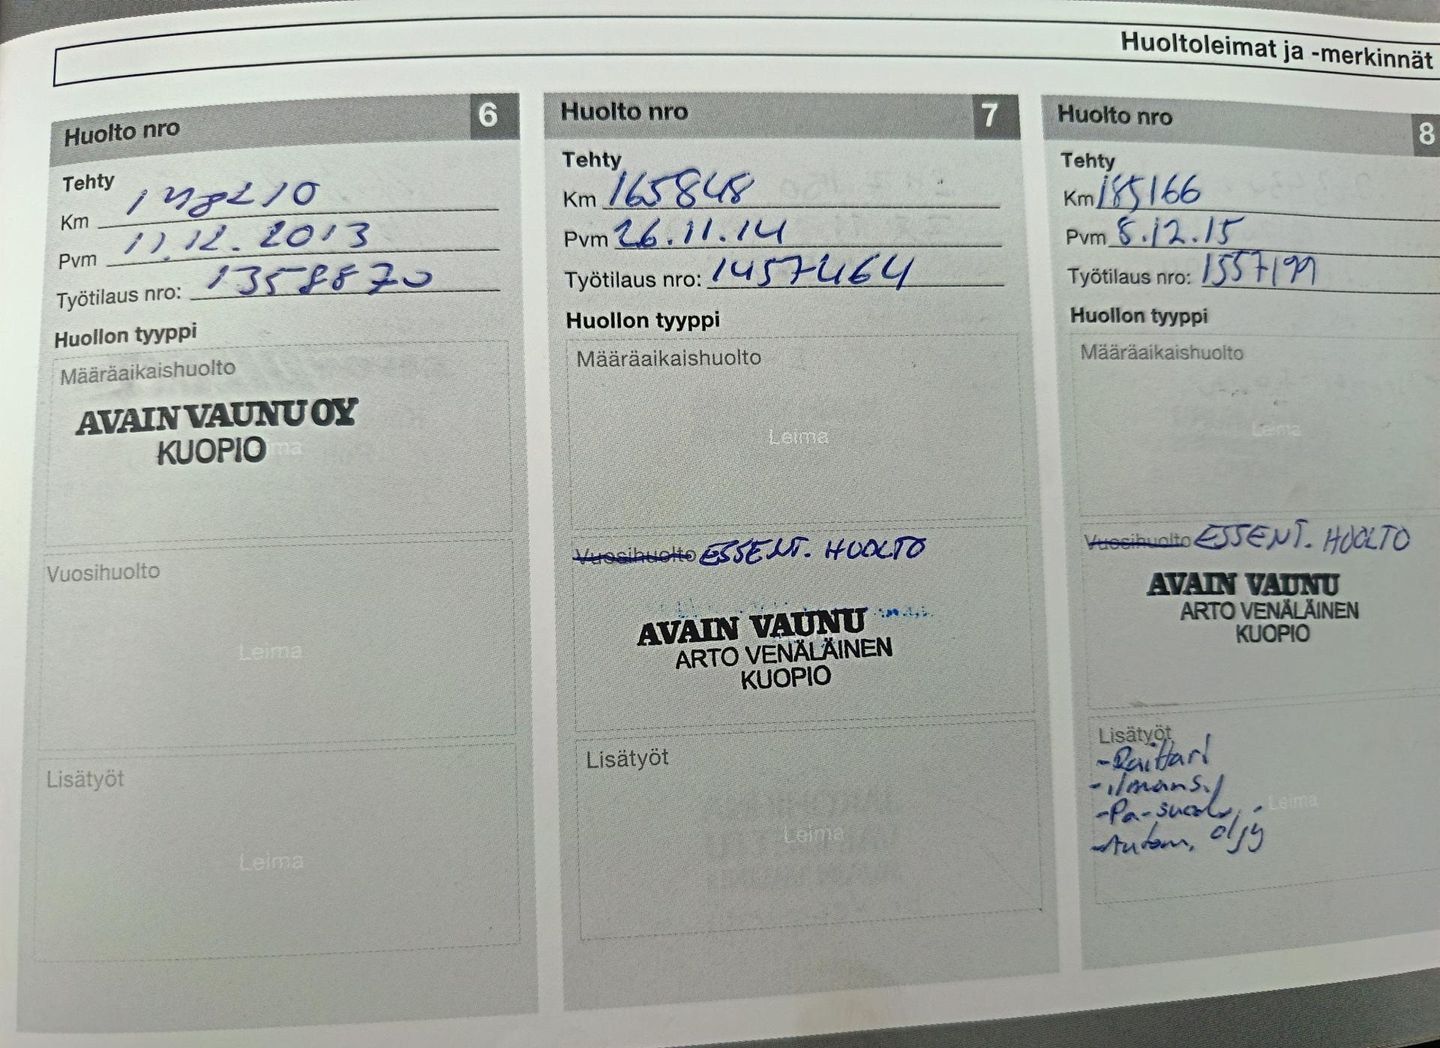 Huoltoleimat ja -merkinnät
Huolto nro 6
Tehty
Km 148210
Pvm 11.12.2013
Työtilaus nro: 1358870
Huollon tyyppi
Määräaikaishuolto
AVAIN VAUNU OY
KUOPIO
Vuosihuolto
Leima
Lisätyöt
Leima
Huolto nro 7
Tehty
Km 165848
Pvm 26.11.14
Työtilaus nro: 1457464
Huollon tyyppi
Määräaikaishuolto
Leima
Vuosihuolto ESSENT. HUOLTO
AVAIN VAUNU
ARTO VENÄLÄINEN
KUOPIO
Lisätyöt
Leima
Huolto nro 8
Tehty
Km 185166
Pvm 8.12.15
Työtilaus nro: 1557199
Huollon tyyppi
Määräaikaishuolto
Leima
Vuosihuolto ESSENT. HUOLTO
AVAIN VAUNU
ARTO VENÄLÄINEN
KUOPIO
Lisätyöt
-Raittari
-ilmans.
Leima
-Autom. öljy